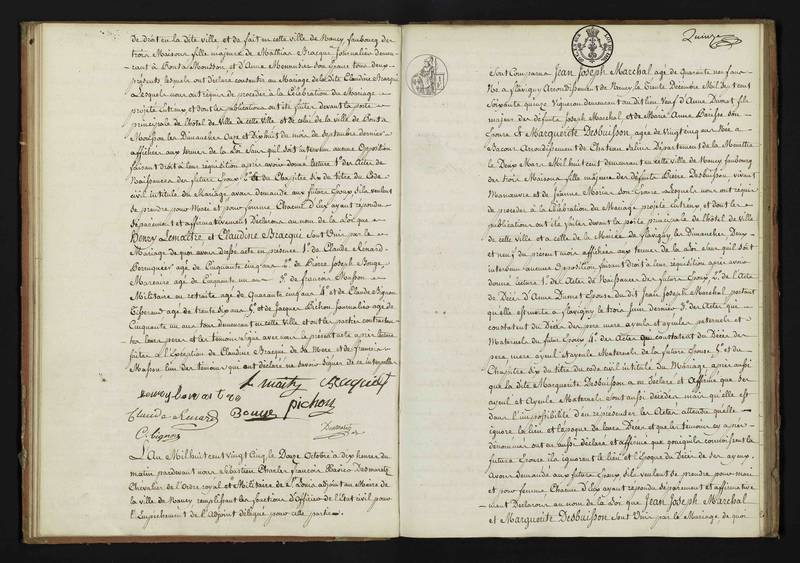 de droit en la dite ville et de fait en cette ville de Nancy faubourg des
trois Maisons fille majeure de Mathias Bracqui Journalier demeu-
rant à Pont à Mousson et d'Anne son Epouse tous deux
présents lesquels ont déclaré consentir au Mariage de la dite Claudine Bracqui
Lesquels nous ont requis de procéder à la Célébration du Mariage
projeté entr'eux et dont les publications ont été faites devant la porte
principale de l'hôtel de Ville de cette Ville et de celui de la Ville de Pont à
Mousson les Dimanches Onze et Dix huit du mois de septembre dernier
affichées aux termes de la Loi sans qu'il soit intervenu aucune Opposition
faisant droit à leur réquisition après avoir donné lecture 1.° des Actes de
Naissances des futurs Epoux 2.° du Chapitre six du titre du Code
civil intitulé du Mariage, avons demandé aux futurs Epoux s'ils veulent
se prendre pour Mari et pour femme Chacun d'eux ayant répondu
séparément et affirmativement Déclarons au nom de la Loi que
Henry Lemaitre et Claudine Bracqui sont Unis par le
Mariage de quoi avons dressé acte en présence 1.° de Claude Renard
Perruquier agé de Cinquante cinq ans 2.° de Pierre Joseph
agé de Cinquante un ans 3.° de françois Masson
Militaire en retraite agé de Quarante cinq ans 4.° et de Claude Bignon
agé de trente six ans 5.° et de Jacques Pichon Journalier agé de
Cinquante un ans tous demeurant en cette Ville et ont les parties contractan-
tes leurs peres et les témoins signé avec nous le présent acte après lecture
faite à l'Exception de Claudine Bracqui de sa Mere et de françois
Masson l'un des témoins qui ont déclaré ne savoir signer de ce interpellés
Bracquet
Claude Renard pichon
C. Bignon
L'An Mil huit cent Vingt Cinq le Douze Octobre à dix heures du
matin pardevant nous Sébastien Charles françois
Chevalier de l'Ordre royal et Militaire de S.t Louis adjoint au Maire de
la ville de Nancy remplissant les fonctions d'Officier de l'Etat civil pour
l'Empêchement de l'Adjoint délégué pour cette partie.
Quinze
Sont Comparus Jean Joseph Marchal agé de Quarante neuf ans
Né à flavigny Arrondissement de Nancy le trente Décembre Mil sept cent
Soixante quinze Vigneron demeurant au dit lieu Veuf d'Anne Dumet fils
majeur des défunts Joseph Marchal, et de Marie Anne son
Epouse Et Marguerite Desbuisson, agée de Vingt cinq ans Née à
Bacour Arrondissement de Chateau Salins Département de la Meurthe
le Deux Mars Mil huit cent demeurant en cette ville de Nancy faubourg
des trois Maisons fille majeure des défunts Pierre Desbuisson, vivant
Manœuvre et de Jeanne son Epouse Lesquels nous ont requis
de procéder à la Célébration du Mariage projeté Entr'eux et dont les
publications ont été faites devant la porte principale de l'hôtel de Ville
de cette ville et à celle de la Mairie de flavigny les Dimanches Deux
et neuf du présent mois affichées aux termes de la Loi sans qu'il soit
intervenu aucune Opposition faisant droit à leur réquisition après avoir
donné lecture 1.° des Actes de Naissances des futurs Epoux, 2.° de l'Acte
de Décès d'Anne Dumet Epouse du dit Jean Joseph Marchal portant
qu'elle est morte à flavigny le trois Juin dernier 3.° des Actes qui
constatent du Décès des pere mere ayeul et ayeules paternels et
Maternels du futur Epoux 4.° des Actes qui constatent du Décès des
pere, mere ayeul et ayeule Maternels de la future Epouse 5.° et du
Chapitre six du titre du code civil intitulé du Mariage, après aussi
que la dite Marguerite Desbuisson a Déclaré et affirmé que ses
ayeul et Ayeule Maternels sont aussi décédés mais qu'elle est
dans l'impossibilité d'en représenter les Actes attendu qu'elle
ignore le lieu et l'époque de leurs Décès et que les témoins cy après
dénommés ont aussi déclaré et affirmé que quoiqu'ils connoissent la
future Epouse ils ignorent le lieu et l'Epoque du Décès de ses ayeux
Avons demandé aux futurs Epoux s'ils veulent se prendre pour mari
et pour femme Chacun d'Eux ayant répondu séparément et affirmative-
ment Déclarons au nom de la Loi que Jean Joseph Marchal
et Marguerite Desbuisson sont Unis par le Mariage, de quoi